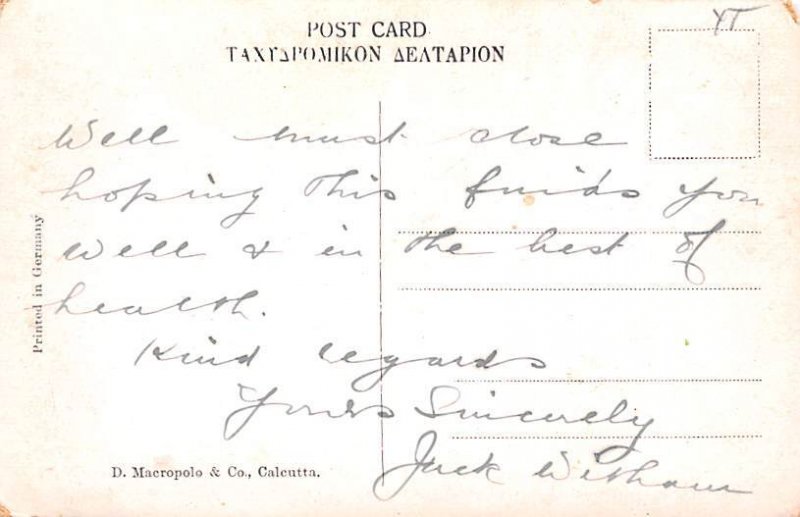 POST CARD
ΤΑΧΥΔΡΟΜΙΚΟΝ ΔΕΛΤΑΡΙΟΝ
Well must close
hoping this finds you
well & in the best of
health.
Kind regards
Yours Sincerely
Jack Witham
Printed in Germany
D. Macropolo & Co., Calcutta.